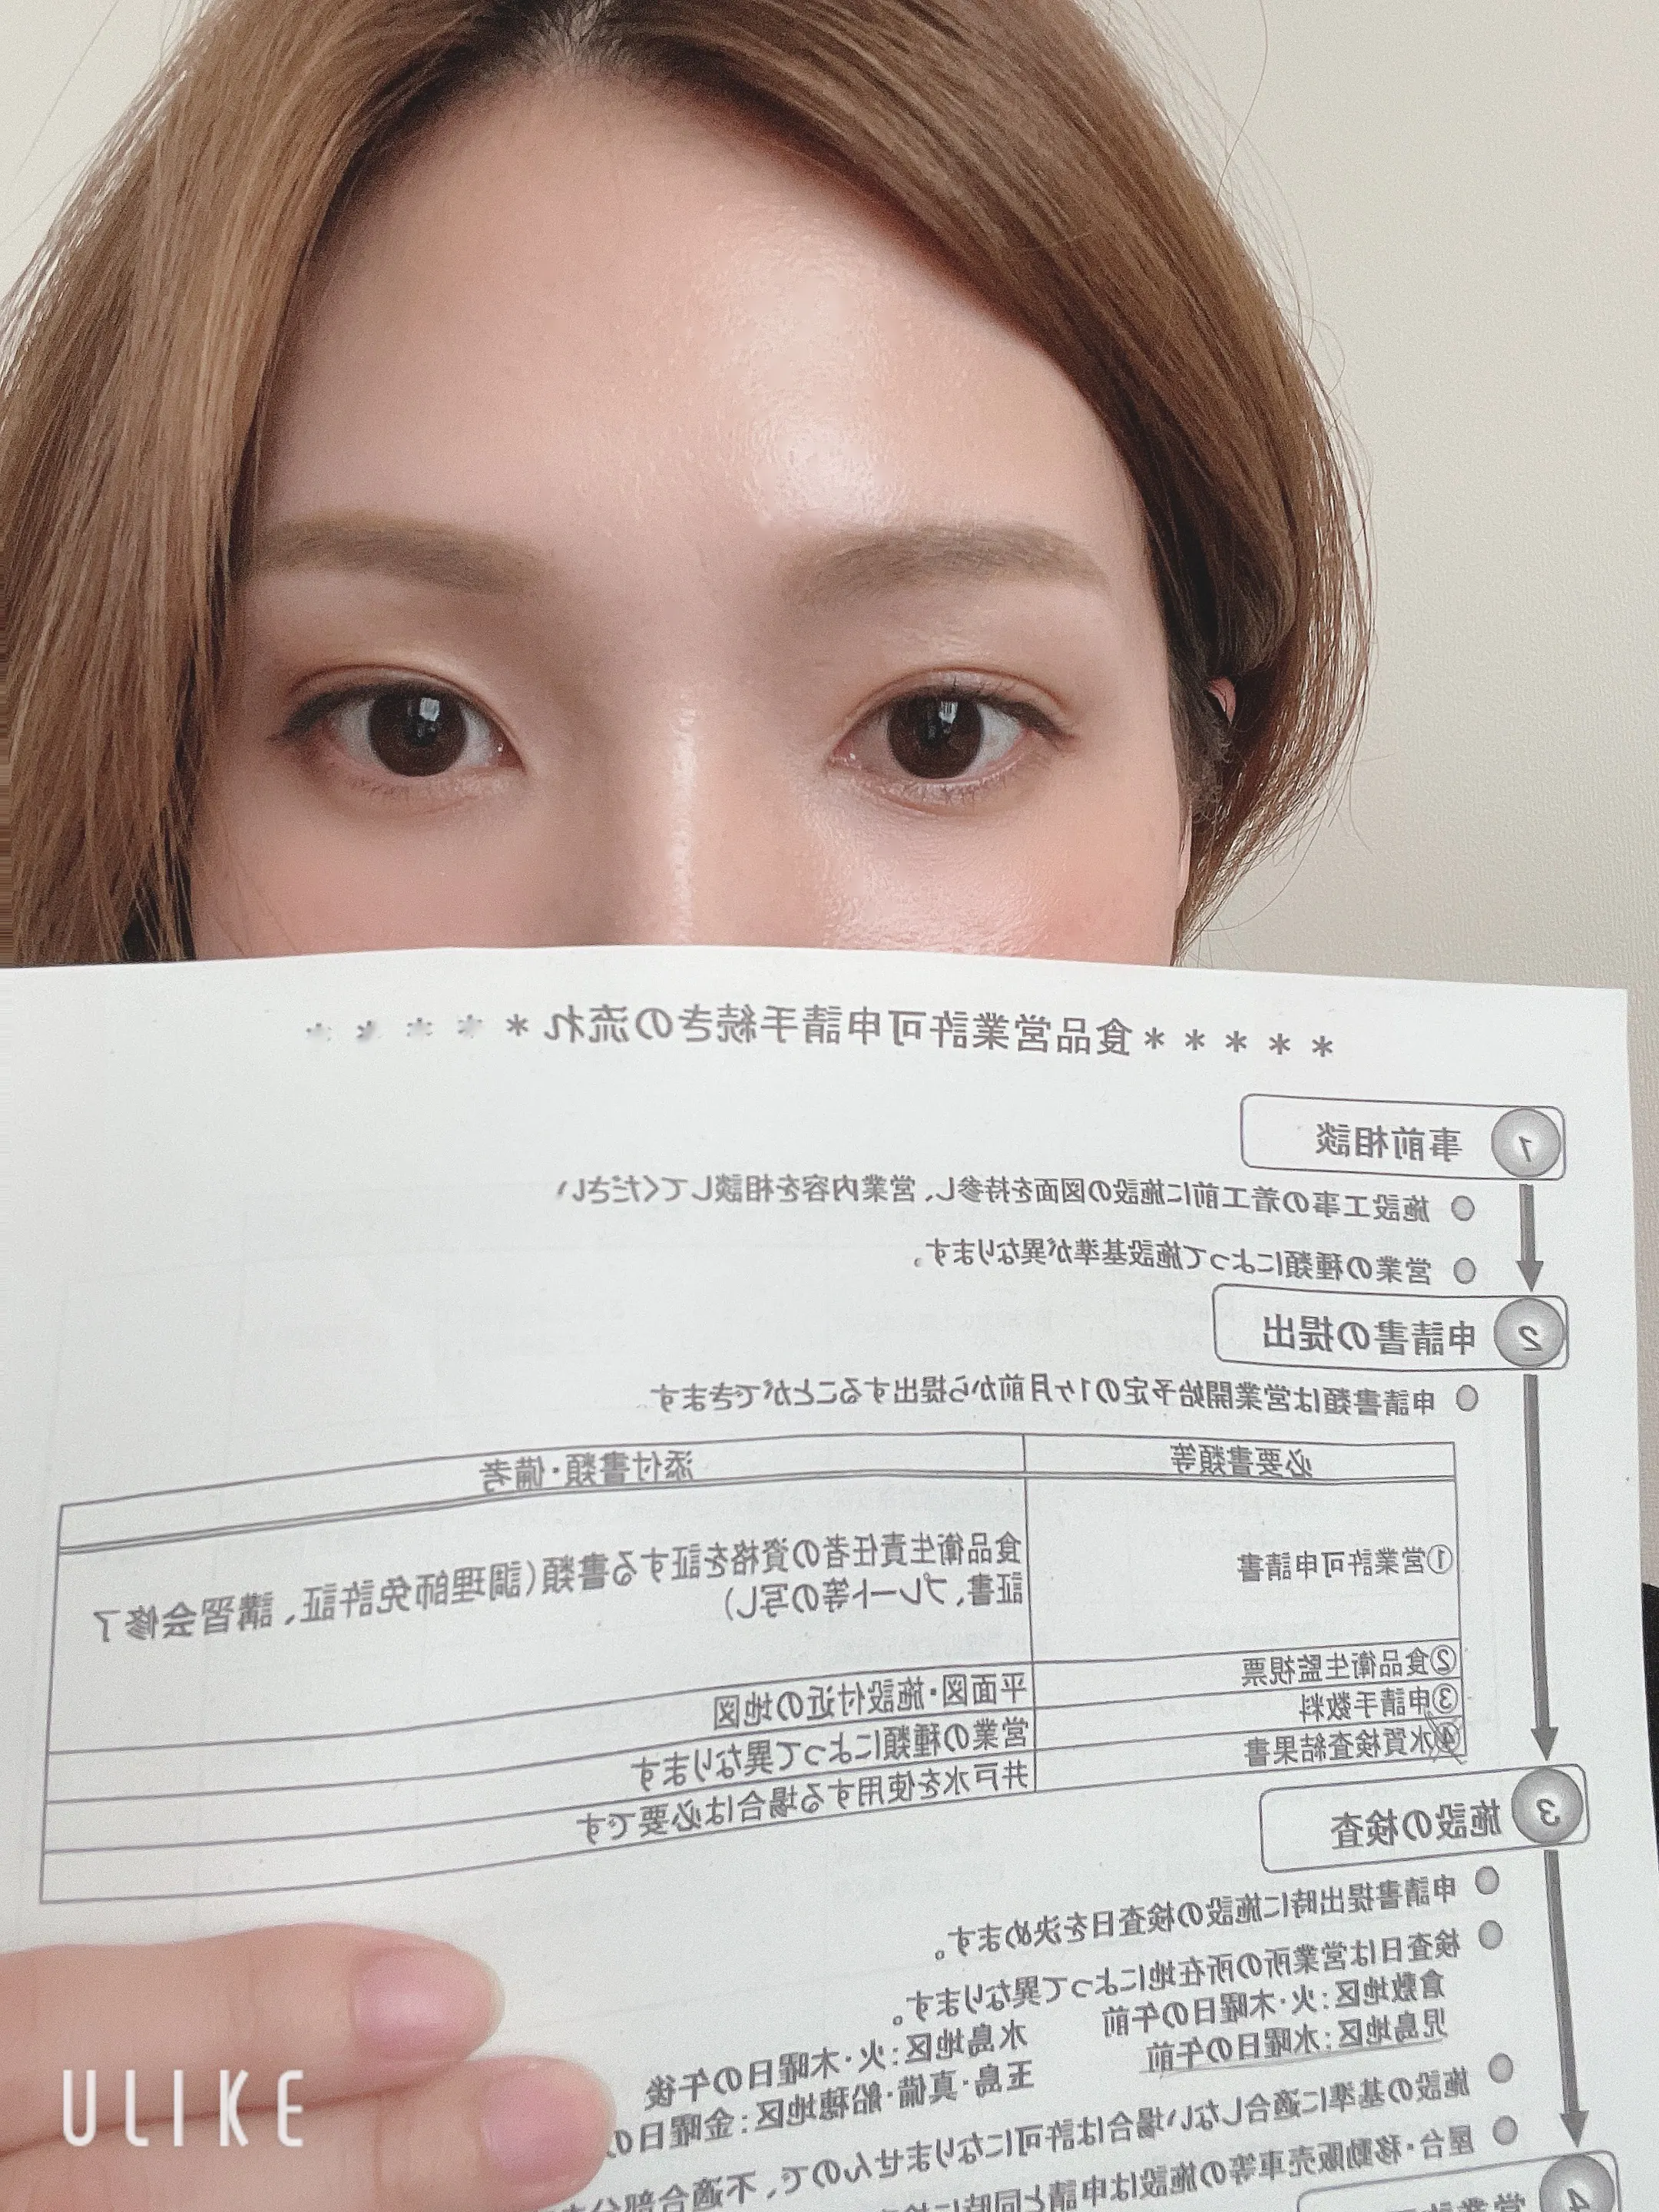 *****食品営業許可申請手続きの流れ*****
1 事前相談
施設工事の着工前に施設の図面を持参し、営業内容を相談してください
営業の種類によって施設基準が異なります。
2 申請書の提出
申請書類は営業開始予定の1ヶ月前から提出することができます
必要書類等 添付書類・備考
①営業許可申請書 食品衛生責任者の資格を証する書類(調理師免許証、講習会修了
証書、プレート等の写し)
②食品衛生監視票 平面図・施設付近の地図
③申請手数料 営業の種類によって異なります
④水質検査結果書 井戸水を使用する場合は必要です
3 施設の検査
申請書提出時に施設の検査日を決めます。
検査日は営業所の所在地によって異なります。
倉敷地区:火・木曜日の午前 水島地区:火・木曜日の午後
児島地区:水曜日の午前 玉島・真備・船穂地区:金曜日の
施設の基準に適合しない場合は許可になりませんので、不適合部分
屋台・移動販売車等の施設は申請と同時に検
4 営業許
ULIKE